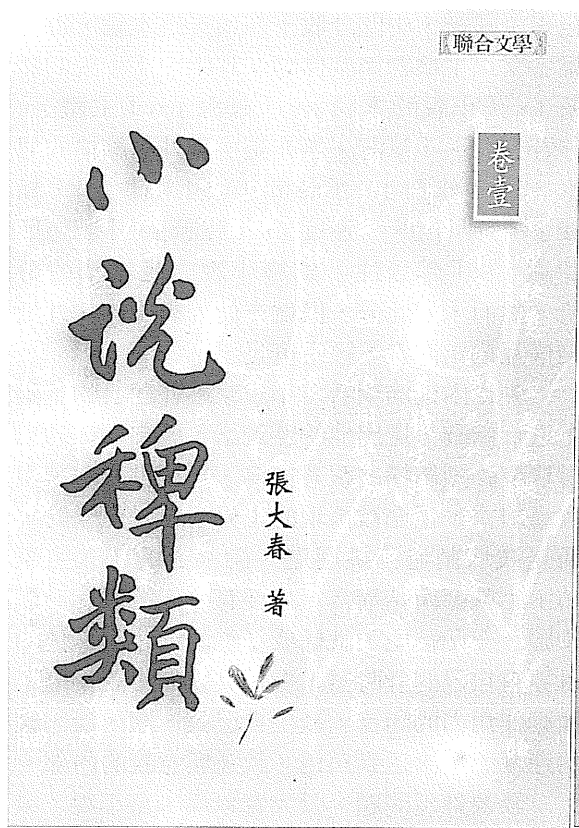 聯合文學
卷壹
小說稗類
張大春 著